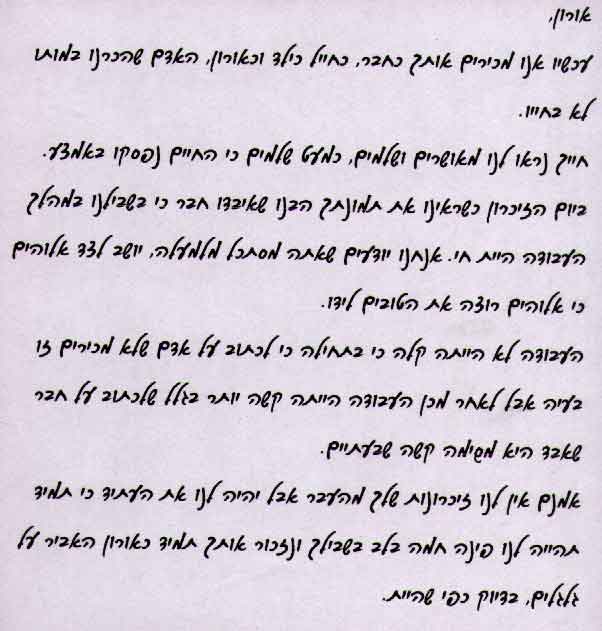 אורון,
עכשיו אנו מכירים אותך כחבר, כחייל כילד וכאורון, האדם שהכרנו במותו
לא בחייו.
חייך נראו לנו מאושרים ושלמים, כמעט שלמים כי החיים נפסקו באמצע.
ביום הזיכרון כשראינו את תמונתך הבנו שאיבדו חבר כי בשבילנו במהלך
העבודה היית חי. אנחנו יודעים שאתה מסתכל מלמעלה, יושב לצד אלוהים
כי אלוהים רוצה את הטובים לידו.
העבודה לא הייתה קלה כי בתחילה כי לכתוב על אדם שלא מכירים זו
בעיה אבל לאחר מכן העבודה הייתה קשה יותר בגלל שלכתוב על חבר
שאבד היא משימה קשה שבעתיים.
אמנם אין לנו זיכרונות שלך מהעבר אבל יהיה לנו את העתיד כי תמיד
תהייה לנו פינה חמה בלב בשבילך ונזכור אותך תמיד כאורון האביר על
גלגלים, בדיוק כפי שהיית.